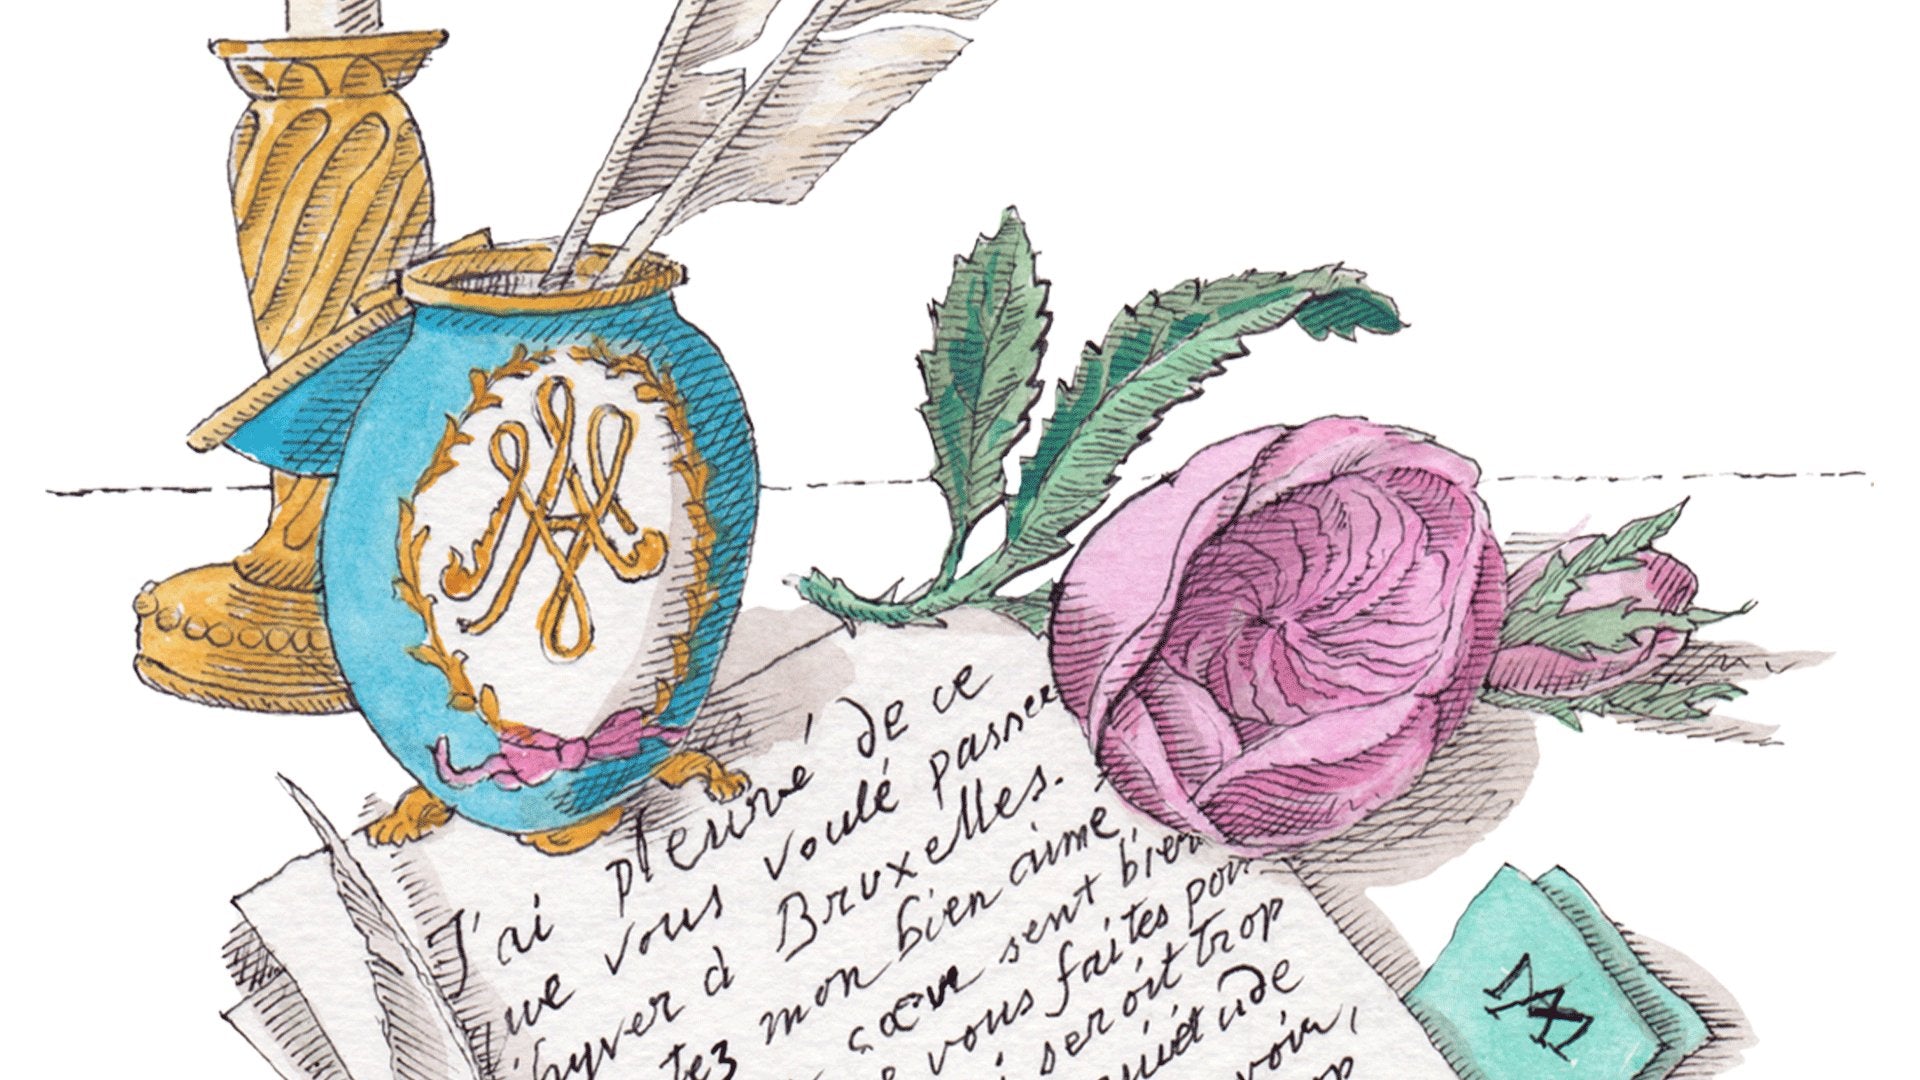 J'ai pleuré de ce
que vous voulé passer
hyver à Bruxelles.
tez mon bien aimé
cœur sent bien
vous faites pour
seroit trop
quiétude
voir,
trop
MA
MA